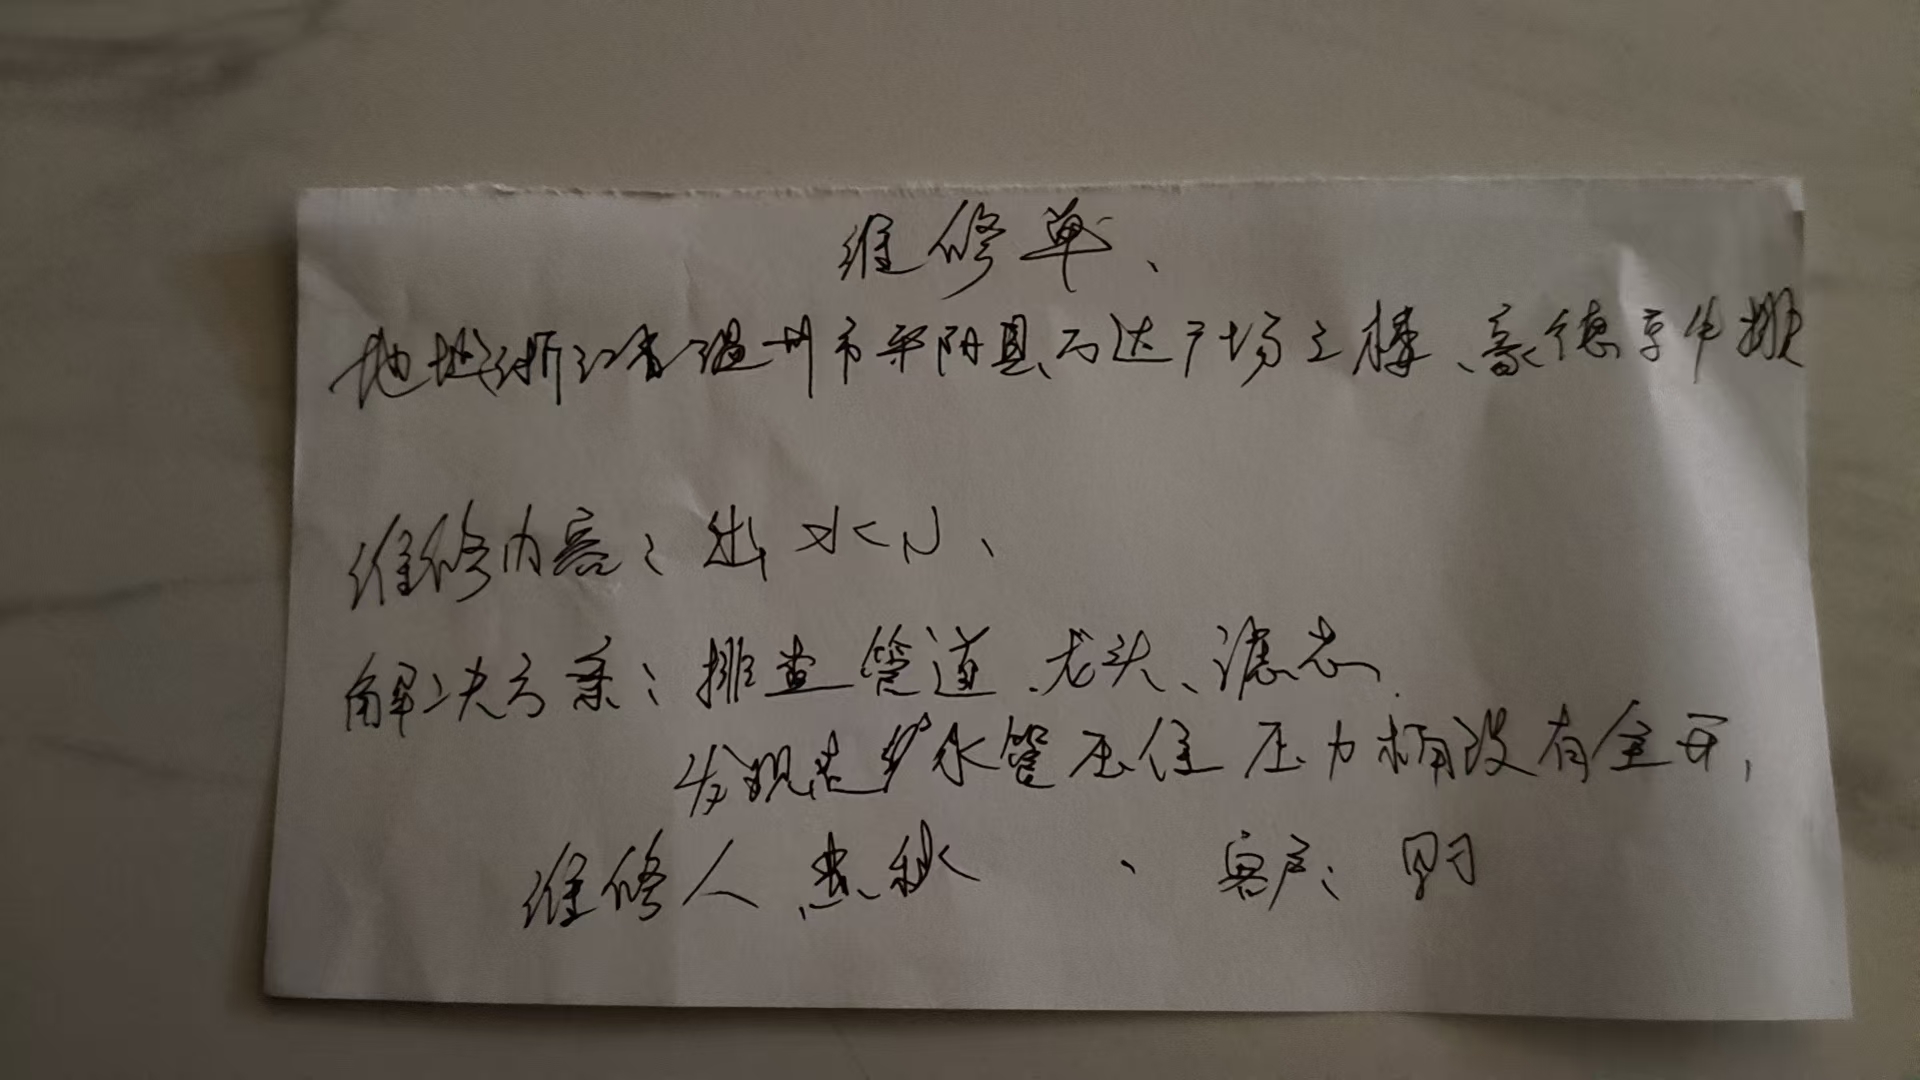 维修单、
地址浙江省温州市平阳县、万达广场三楼、豪德亨牛排
维修内容：出水小、
解决方案：排查管道、龙头、滤芯.
发现是矿水管压住压力桶没有全开，
维修人 秋、客户：